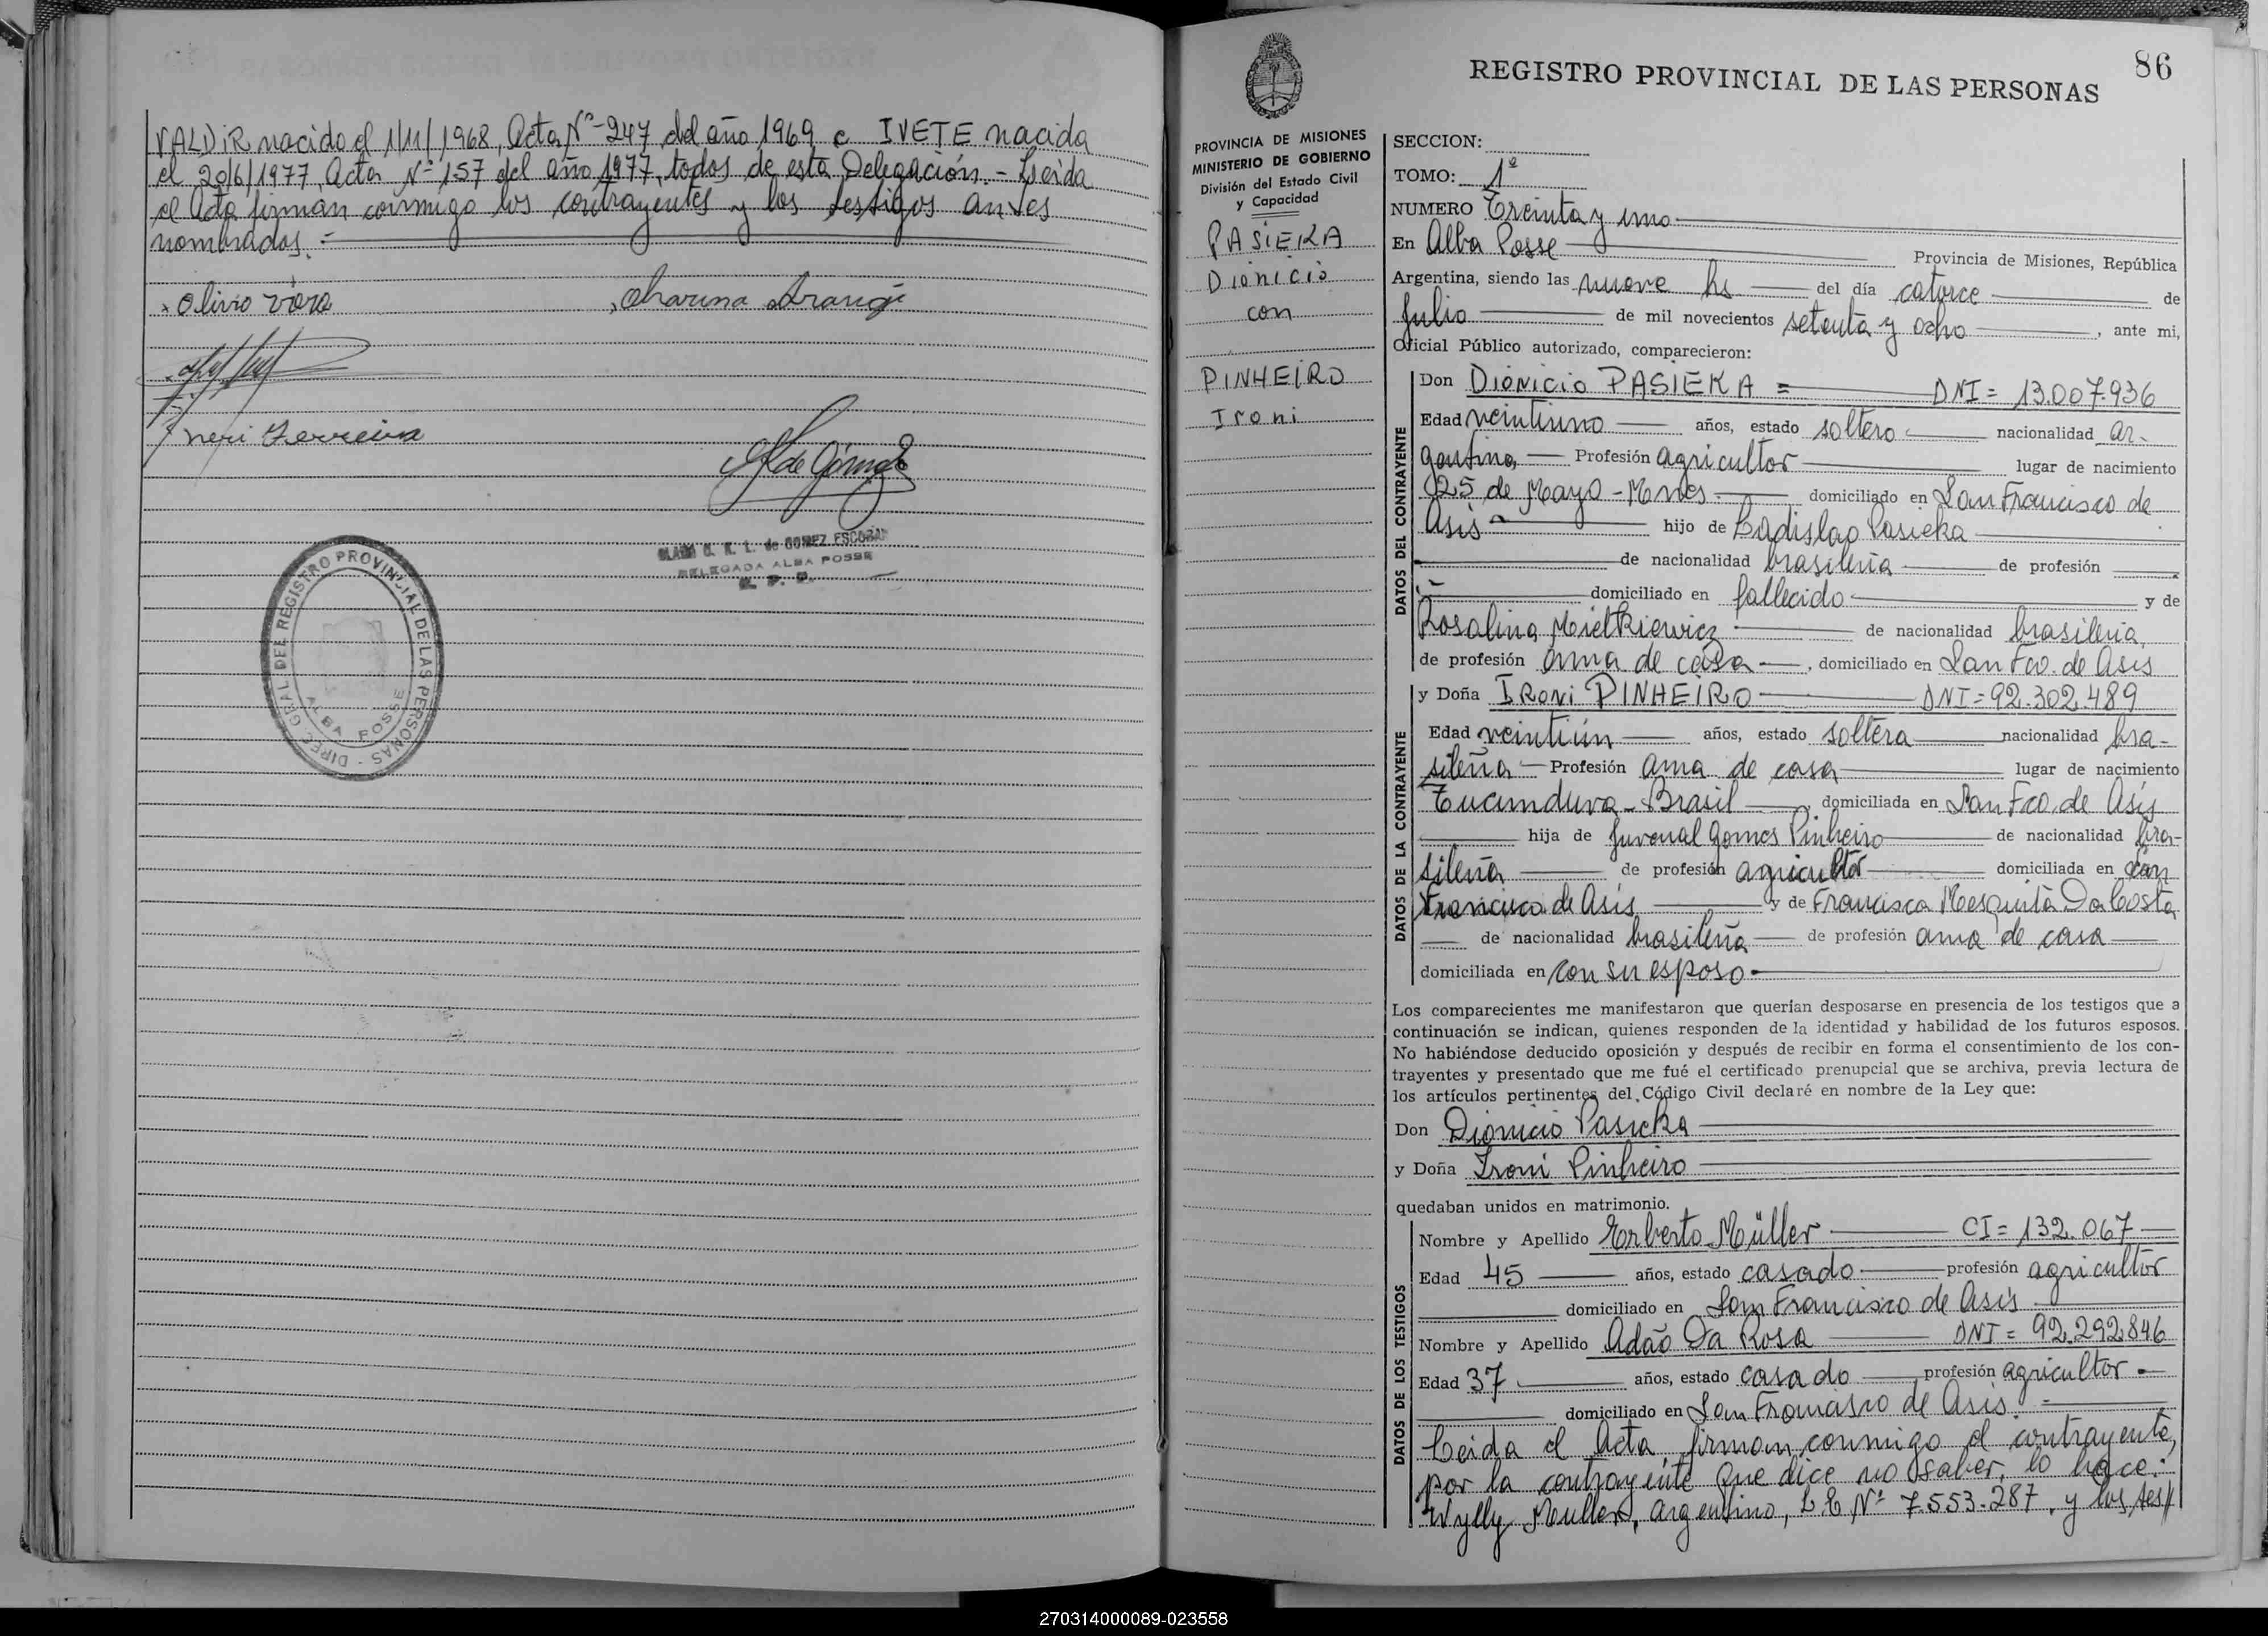 VALDIR nacido el 1/11/1968, Acta Nº-247 del año 1969 e IVETE nacida
el 20/6/1977, Acta Nº 157 del año 1977, todos de esta Delegación.- Leida
el Acta firman conmigo los contrayentes y los testigos antes
nombrados.-
Olivio viera
Neri Ferreira
DELEGADA ALBA POSSE
DIREC. GRAL. DEL REGISTRO PROVINCIAL DE LAS PERSONAS -
ALBA POSSE
86
REGISTRO PROVINCIAL DE LAS PERSONAS
PROVINCIA DE MISIONES
MINISTERIO DE GOBIERNO
División del Estado Civil
y Capacidad
PASIEKA
Dionicio
con
PINHEIRO
Ironi
SECCION:
TOMO: 1º
NUMERO Treinta y uno
En Alba Posse Provincia de Misiones, República
Argentina, siendo las nueve hs del día catorce de
Julio de mil novecientos setenta y ocho, ante mi,
Oficial Público autorizado, comparecieron:
DATOS DEL CONTRAYENTE
Don Dionicio PASIEKA = DNI= 13.007.936
Edad veintiuno años, estado soltero nacionalidad ar-
gentina Profesión agricultor lugar de nacimiento
25 de Mayo - Mnes domiciliado en San Francisco de
Asis hijo de Ladislao Pasieka
de nacionalidad brasileña de profesión
domiciliado en fallecido y de
Rosalina Mielkiewicz de nacionalidad brasileña,
de profesión ama de casa, domiciliado en San Fco. de Asis
DATOS DE LA CONTRAYENTE
y Doña Ironi PINHEIRO DNI=92.302.489
Edad veintiún años, estado soltera nacionalidad bra-
sileña Profesión ama de casa lugar de nacimiento
Tucunduva - Brasil, domiciliada en San Fco. de Asis
hija de Juvenal Gomes Pinheiro de nacionalidad bra-
sileña de profesión agricultor domiciliada en San
Francisco de Asis y de Francisca Mesquita Da Costa
de nacionalidad brasileña de profesión ama de casa
domiciliada en con su esposo
Los comparecientes me manifestaron que querían desposarse en presencia de los testigos que a
continuación se indican, quienes responden de la identidad y habilidad de los futuros esposos.
No habiéndose deducido oposición y después de recibir en forma el consentimiento de los con-
trayentes y presentado que me fué el certificado prenupcial que se archiva, previa lectura de
los artículos pertinentes del Código Civil declaré en nombre de la Ley que:
Don Dionicio Pasieka
y Doña Ironi Pinheiro
quedaban unidos en matrimonio.
DATOS DE LOS TESTIGOS
Nombre y Apellido Erberto Müller CI= 132.067
Edad 45 años, estado casado profesión agricultor
domiciliado en San Francisco de Asis
Nombre y Apellido Adão Da Rosa DNI= 92.292.846
Edad 37 años, estado casado profesión agricultor
domiciliado en San Francisco de Asis.
Leida el Acta firman conmigo el contrayente,
por la contrayente que dice no saber, lo hace:
Wylly Muller, argentino, L.E Nº 7.553.287, y los tes//
270314000089-023558